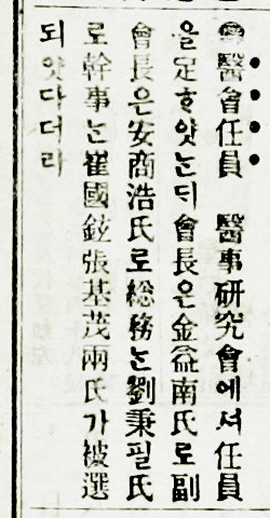 醫會任員 醫事硏究會에셔任員
을定ᄒᆞ얏ᄂᆞᆫᄃᆡ會長은金益南氏로副
會長은安商浩氏로総務ᄂᆞᆫ劉秉珌氏
로幹事ᄂᆞᆫ崔國鉉張基茂兩氏가被選
되얏다더라